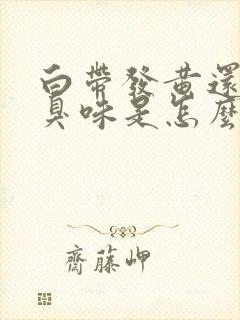 白帶發黃還
臭味是怎麼
齋藤岬